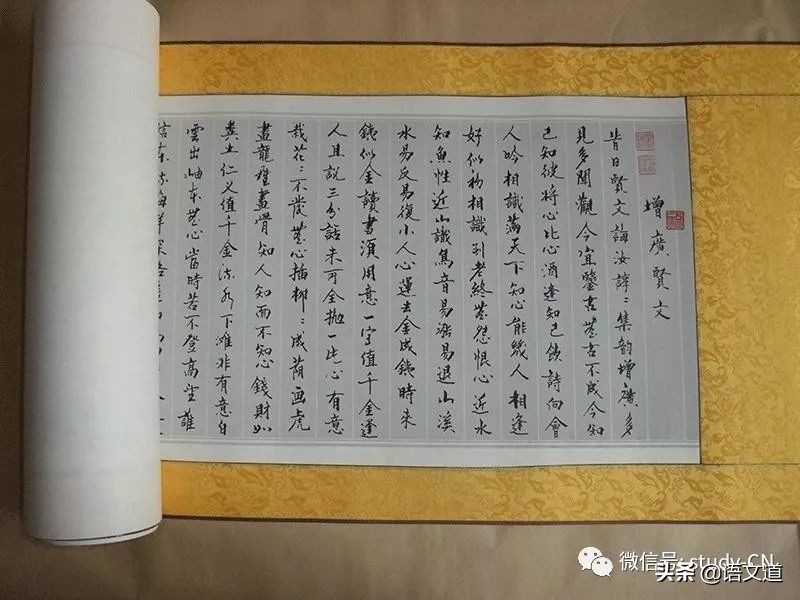 增廣賢文
昔日賢文誨汝諄〻集韵增廣多
見多聞觀今宜鑒古無古不成今知
己知彼將心比心酒逢知己飲詩向會
人吟相識滿天下知心能幾人相逢
好似初相識到老終無怨恨心近水
知魚性近山識鳥音易漲易退山溪
水易反易復小人心運去金成鐵時來
鐵似金讀書須用意一字值千金逢
人且說三分話未可全拋一片心有意
栽花〻不發無心插柳〻成蔭画虎
畫龍難畫骨知人知面不知心錢財如
糞土仁义值千金流水下灘非有意白
雲出岫本無心當時若不登高望誰
信東流海洋深路遙
微信号: study-CN
头条 @语文道